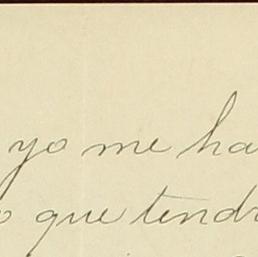 yo me ha
que tendr